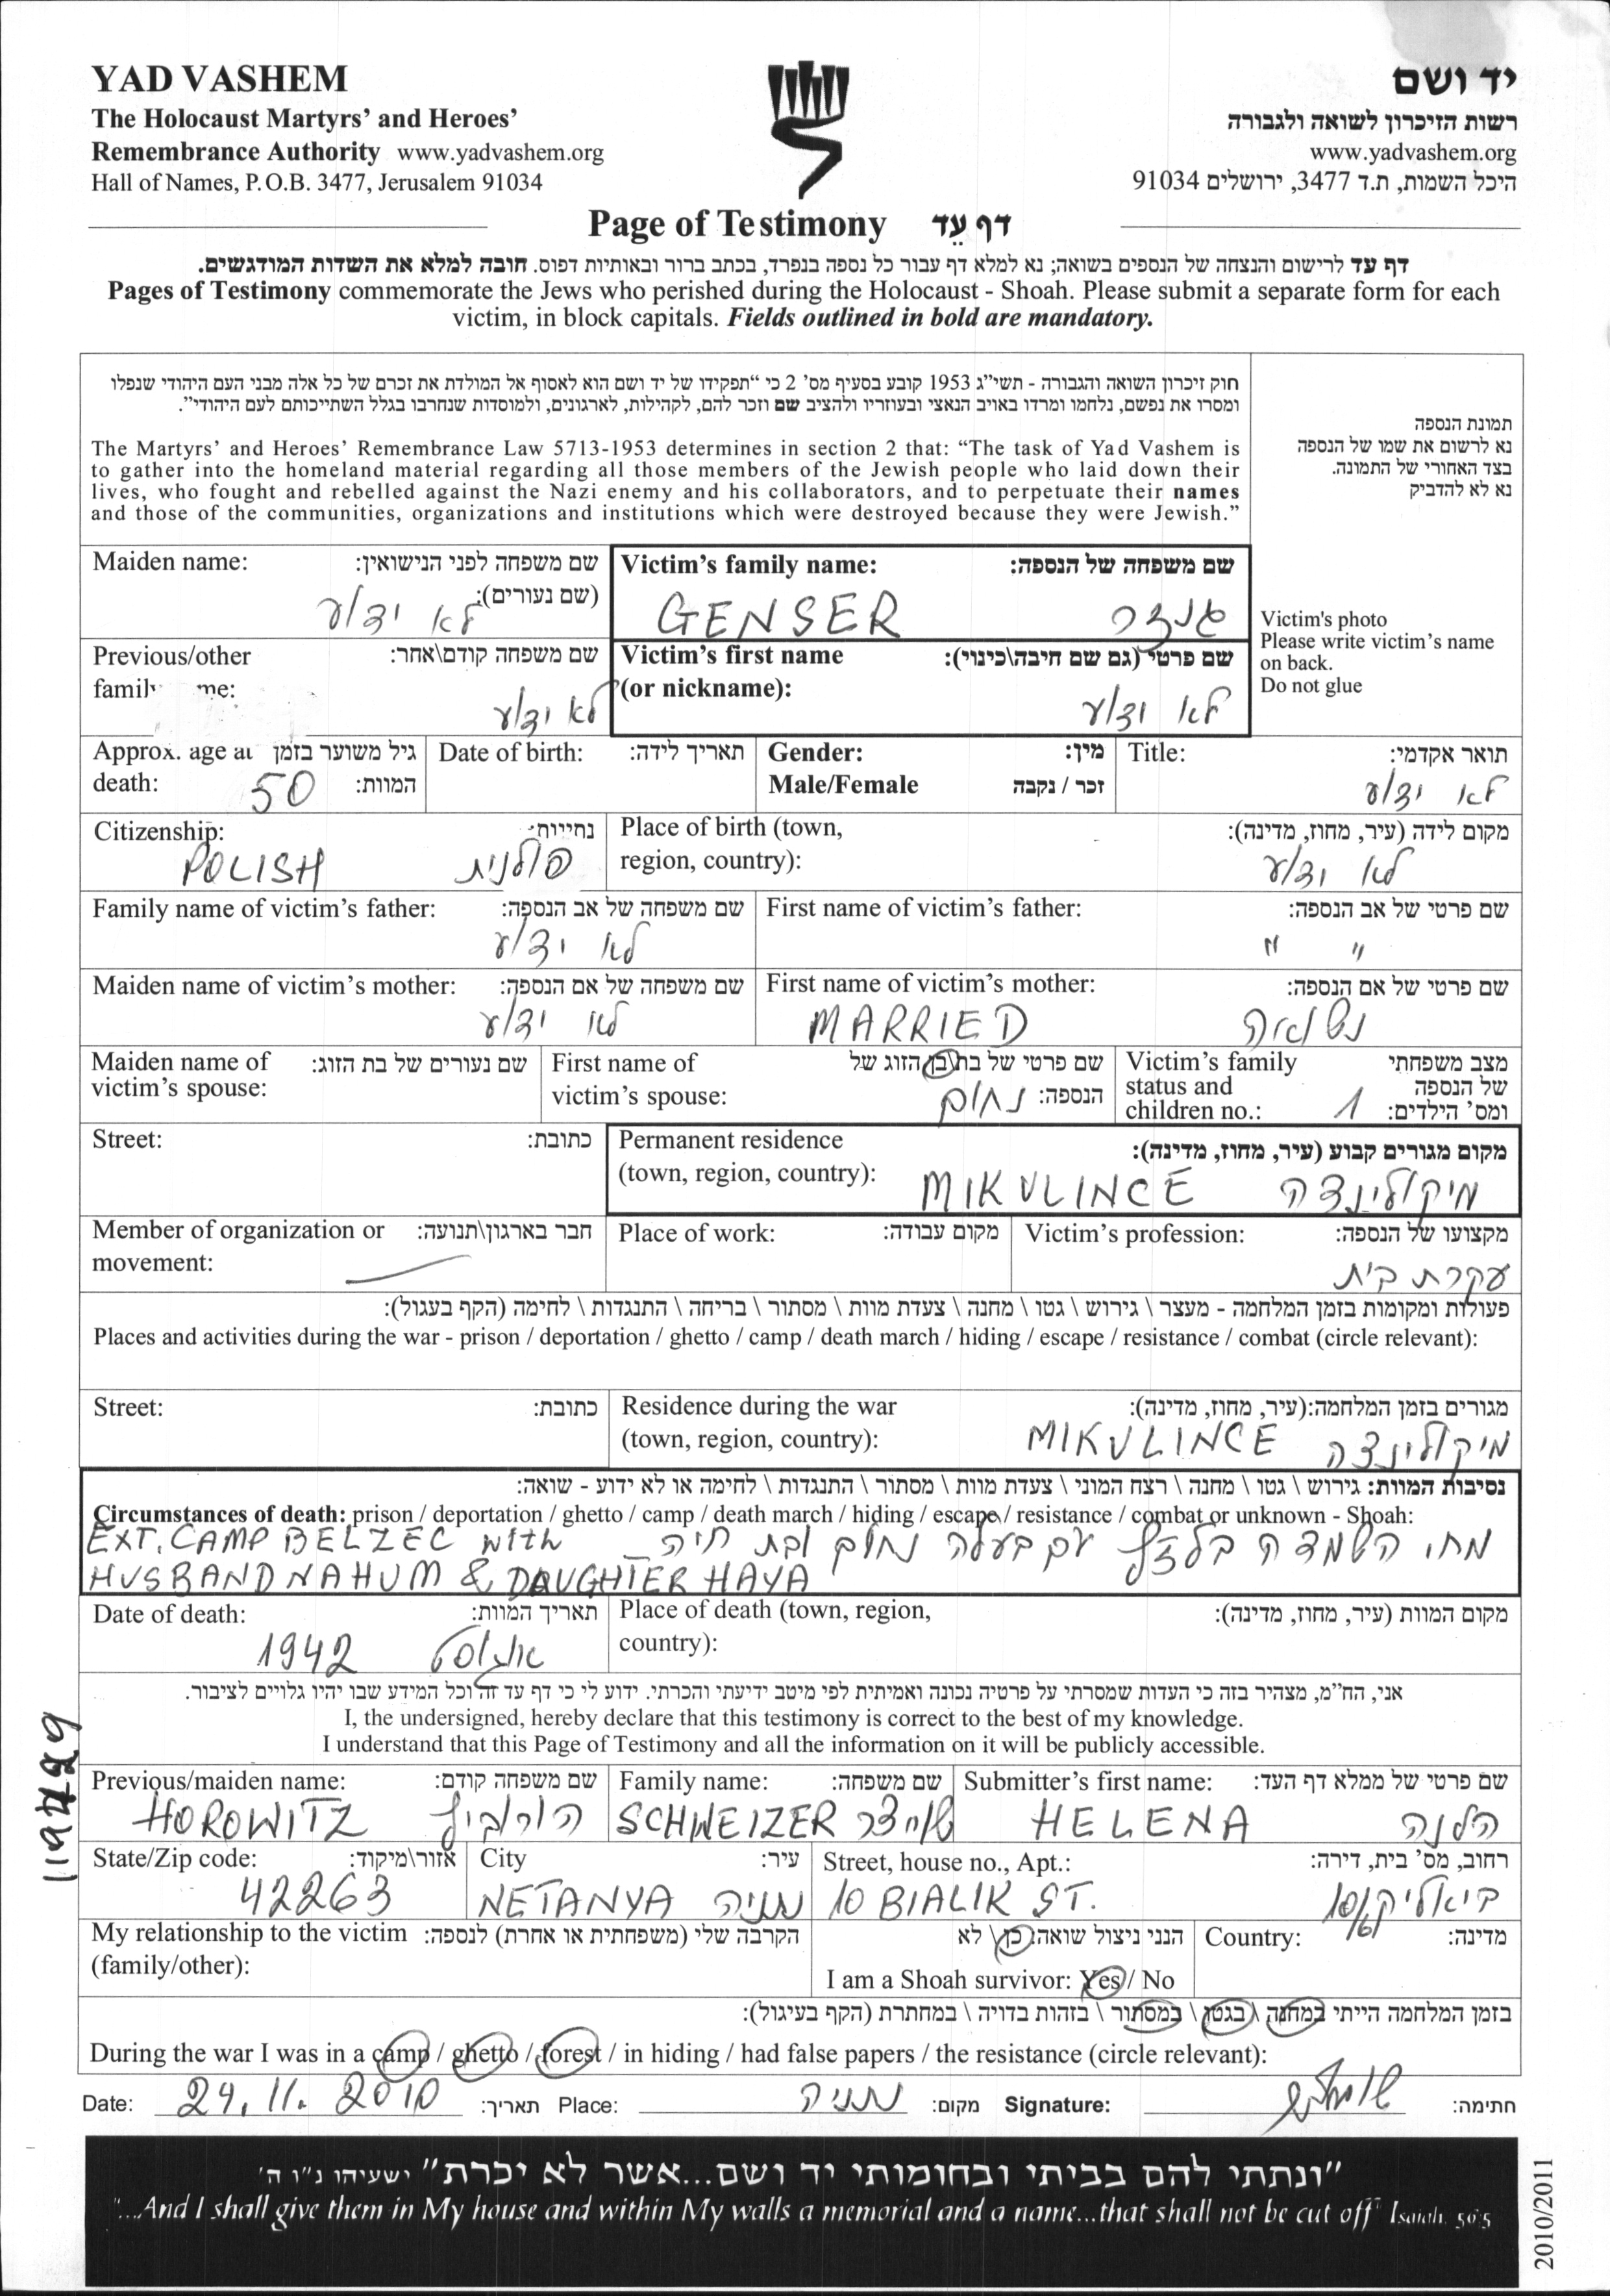 YAD VASHEM
The Holocaust Martyrs' and Heroes'
Remembrance Authority www.yadvashem.org
Hall of Names, P.O.B. 3477, Jerusalem 91034
יד ושם
רשות הזיכרון לשואה ולגבורה
www.yadvashem.org
היכל השמות, ת.ד 3477, ירושלים 91034
Page of Testimony דף עֵד
דף עד לרישום והנצחה של הנספים בשואה; נא למלא דף עבור כל נספה בנפרד, בכתב ברור ובאותיות דפוס. חובה למלא את השדות המודגשים.
Pages of Testimony commemorate the Jews who perished during the Holocaust - Shoah. Please submit a separate form for each
victim, in block capitals. Fields outlined in bold are mandatory.
חוק זיכרון השואה והגבורה - תשי"ג 1953 קובע בסעיף מס' 2 כי "תפקידו של יד ושם הוא לאסוף אל המולדת את זכרם של כל אלה מבני העם היהודי שנפלו
ומסרו את נפשם, נלחמו ומרדו באויב הנאצי ובעוזריו ולהציב שם וזכר להם, לקהילות, לארגונים, ולמוסדות שנחרבו בגלל השתייכותם לעם היהודי".
The Martyrs' and Heroes' Remembrance Law 5713-1953 determines in section 2 that: "The task of Yad Vashem is
to gather into the homeland material regarding all those members of the Jewish people who laid down their
lives, who fought and rebelled against the Nazi enemy and his collaborators, and to perpetuate their names
and those of the communities, organizations and institutions which were destroyed because they were Jewish."
תמונת הנספה
נא לרשום את שמו של הנספה
בצד האחורי של התמונה.
נא לא להדביק
Victim's photo
Please write victim's name
on back.
Do not glue
Maiden name: שם משפחה לפני הנישואין:
(שם נעורים):
לא ידוע
Victim's family name: שם משפחה של הנספה:
GENSER גנזר
Previous/other שם משפחה קודם\אחר:
לא ידוע
Victim's first name שם פרטי (גם שם חיבה\כינוי):
(or nickname):
לא ידוע
Approx. age at גיל משוער בזמן
death: 50 המוות:
Date of birth: תאריך לידה:
Gender: מין:
Male/Female זכר / נקבה
Title: תואר אקדמי:
לא ידוע
Citizenship: נתינות:
POLISH פולנית
Place of birth (town, מקום לידה (עיר, מחוז, מדינה):
region, country): לא ידוע
Family name of victim's father: שם משפחה של אב הנספה:
לא ידוע
First name of victim's father: שם פרטי של אב הנספה:
" "
Maiden name of victim's mother: שם משפחה של אם הנספה:
לא ידוע
First name of victim's mother: שם פרטי של אם הנספה:
MARRIED נשואה
Maiden name of שם נעורים של בת הזוג:
victim's spouse:
First name of שם פרטי של בת\בן הזוג של
victim's spouse: הנספה: נחום
Victim's family מצב משפחתי
status and של הנספה
children no.: 1 ומס' הילדים:
Street: כתובת:
Permanent residence מקום מגורים קבוע (עיר, מחוז, מדינה):
(town, region, country): MIKULINCE מיקולינצה
Member of organization or חבר בארגון\תנועה:
movement:
Place of work: מקום עבודה:
Victim's profession: מקצועו של הנספה:
עקרת בית
פעולות ומקומות בזמן המלחמה - מעצר \ גירוש \ גטו \ מחנה \ צעדת מוות \ מסתור \ בריחה \ התנגדות \ לחימה (הקף בעגול):
Places and activities during the war - prison / deportation / ghetto / camp / death march / hiding / escape / resistance / combat (circle relevant):
Street: כתובת:
Residence during the war מגורים בזמן המלחמה:(עיר, מחוז, מדינה):
(town, region, country): MIKULINCE מיקולינצה
נסיבות המוות: גירוש \ גטו \ מחנה \ רצח המוני \ צעדת מוות \ מסתור \ התנגדות \ לחימה או לא ידוע - שואה:
Circumstances of death: prison / deportation / ghetto / camp / death march / hiding / escape / resistance / combat or unknown - Shoah:
EXT. CAMP BELZEC with מח' השמדה בלזץ עם בעלה נחום ובת חיה
HUSBAND NAHUM & DAUGHTER HAYA
Date of death: תאריך המוות:
1942 אוגוסט
Place of death (town, region, מקום המוות (עיר, מחוז, מדינה):
country):
אני, הח"מ, מצהיר בזה כי העדות שמסרתי על פרטיה נכונה ואמיתית לפי מיטב ידיעתי והכרתי. ידוע לי כי דף עד זה וכל המידע שבו יהיו גלויים לציבור.
I, the undersigned, hereby declare that this testimony is correct to the best of my knowledge.
I understand that this Page of Testimony and all the information on it will be publicly accessible.
Previous/maiden name: שם משפחה קודם:
HOROWITZ הורוביץ
Family name: שם משפחה:
SCHWEIZER שוייצר
Submitter's first name: שם פרטי של ממלא דף העד:
HELENA הלנה
State/Zip code: אזור\מיקוד:
42263
City עיר:
NETANYA נתניה
Street, house no., Apt.: רחוב, מס' בית, דירה:
10 BIALIK ST. ביאליק 10
My relationship to the victim הקרבה שלי (משפחתית או אחרת) לנספה:
(family/other):
הנני ניצול שואה: כן \ לא
I am a Shoah survivor: Yes / No
Country: מדינה:
בזמן המלחמה הייתי במחנה \ בגטו \ במסתור \ בזהות בדויה \ במחתרת (הקף בעיגול):
During the war I was in a camp / ghetto / forest / in hiding / had false papers / the resistance (circle relevant):
Date: 24.11.2010 תאריך: Place: נתניה מקום: Signature: חתימה:
"ונתתי להם בביתי ובחומותי יד ושם...אשר לא יכרת" ישעיהו נ"ו ה'
"...And I shall give them in My house and within My walls a memorial and a name...that shall not be cut off" Isaiah 56:5
2010/2011